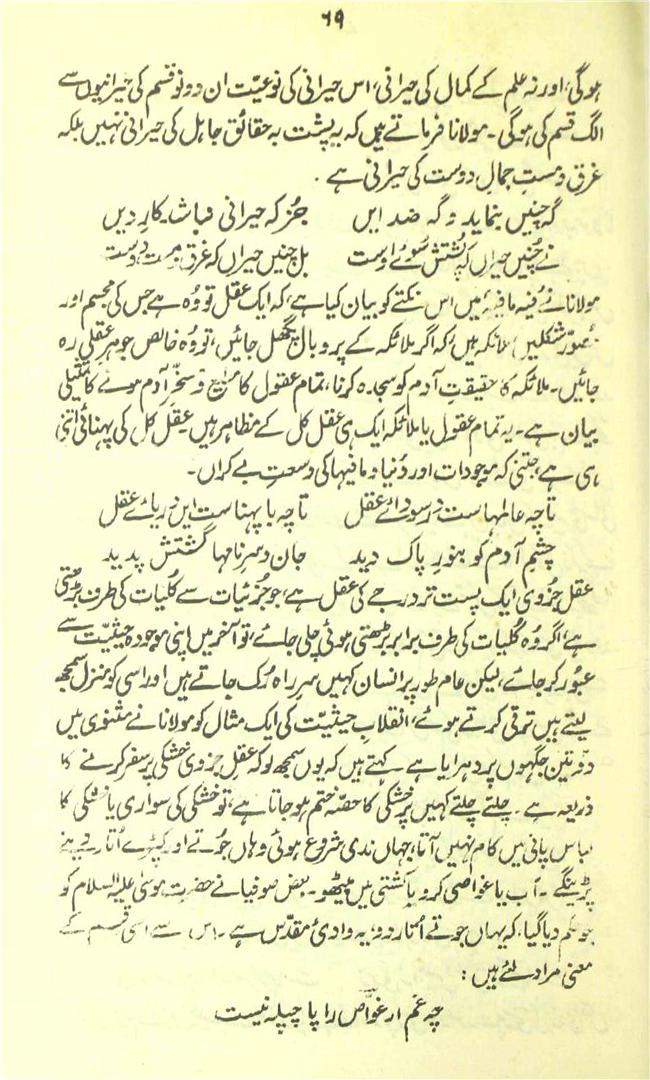 ۶۹
ہوگی، اور نہ علم کے کمال کی حیرانی، اس حیرانی کی نوعیّت ان دونو قسم کی حیرانیوں سے
الگ قسم کی ہوگی۔ مولانا فرماتے ہیں کہ یہ پشت بہ حقائق جاہل کی حیرانی نہیں بلکہ
غرق و مستِ جمالِ دوست کی حیرانی ہے۔
گہ چنیں بنماید و گہ ضد ایں جُز کہ حیرانی نباشد کارِ دیں
نے چُنیں حیراں کہ پُشتش سُوئے اوست بل چنیں حیراں کہ غرق و مست دوست
مولانا نے فیہ مافیہ میں اس نکتے کو بیان کیا ہے، کہ ایک عقل تو وُہ ہے جس کی مجسم اور
مصوّر شکلیں ملائکہ ہیں، کہ اگر ملائکہ کے پر و بال پگھل جائیں، تو وُہ خالص جوہرِ عقلی رہ
جائیں۔ ملائکہ کا حقیقتِ آدم کو سجدہ کرنا، تمام عقول کا مطیع و مسخّرِ آدم ہونے کا تمثیلی
بیان ہے۔ یہ تمام عقول یا ملائکہ ایک ہی عقل کل کے مظاہر ہیں۔ عقل کل کی پہنائی اتنی
ہی ہے، جتنی کہ موجودات اور دُنیا و مافیہا کی وسعتِ بے کراں۔
تا چہ عالمہاست در سودائے عقل تا چہ با پہناست ایں دریائے عقل
چشمِ آدم کو بنورِ پاک دید جان و سرِ نامہا گشتش پدید
عقل جزوی ایک پست تر درجے کی عقل ہے، جو جُزئیات سے کُلیات کی طرف بڑھتی
ہے، اگر وُہ کُلیات کی طرف برابر بڑھتی ہوئی چلی جائے، تو آخر میں اپنی موجودہ حیثیّت سے
عبُور کر جائے، لیکن عام طور پر انسان کہیں سرِ راہ رُک جاتے ہیں اور اسی کو منزل سمجھ
لیتے ہیں ترقی کرتے ہوئے، انقلابِ حیثیّت کی ایک مثال کو مولانا نے مثنوی میں
دو تین جگہوں پر دہرایا ہے۔ کہتے ہیں کہ یوں سمجھ لو کہ عقلِ جزوی خشکی پر سفر کرنے کا
ذریعہ ہے۔ چلتے چلتے کہیں پر خشکی کا حصّہ ختم ہو جاتا ہے، تو خشکی کی سواری یا خشکی کا
لباس پانی میں کام نہیں آتا، جہاں ندی شروع ہوئی وہاں جُوتے اور کپڑے اُتار دینے
پڑینگے۔ آب یا غواصی کرو یا کشتی میں بیٹھو۔ بعض صوفیا نے حضرت موسٰی علیہ السلام کو
جو حکم دیا گیا، کہ یہاں جوتے اُتار دو، یہ وادئ مقدّس ہے۔ اس سے اسی قسم کے
معنی مراد لئے ہیں:
چہ غم ار غوّاص را پا چیلہ نیست